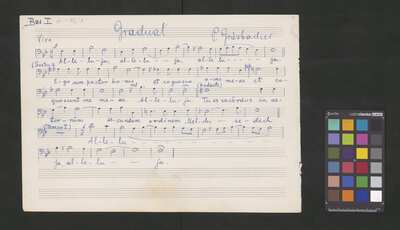 Bas I
Gradual
Vivo
Al-le-lu-ja, al-le-lu - - ja, al-le-lu - - - - - ja.
E-go sum pastor bo-nus et cognosco o-ves me-as et co-
gnoscunt me me-ae. Al-le-lu-ja. Tu es sacerdos in ae-
ternum secundum ordinem Mel-chi-se-dech
Al-le-lu-
ja, al-le-lu - - ja